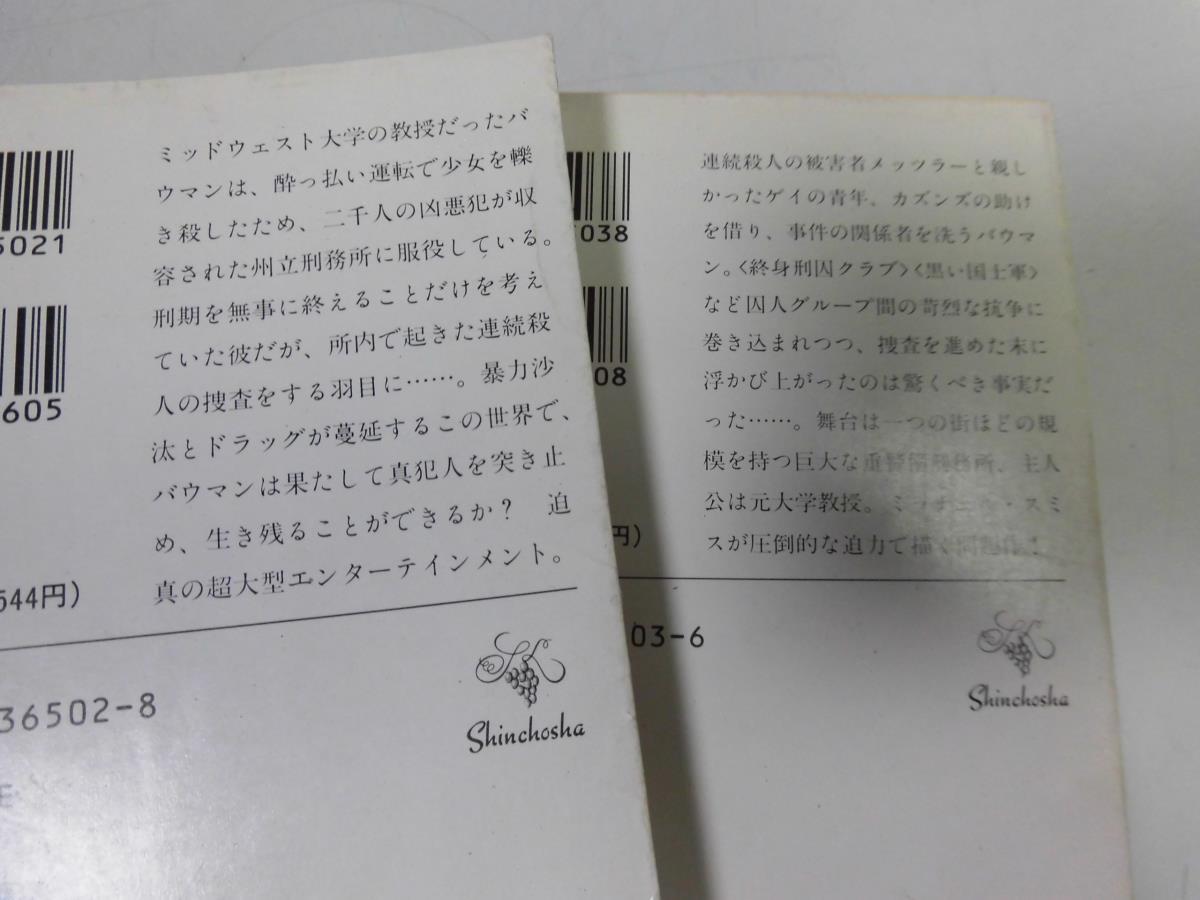 ミッドウェスト大学の教授だったバ
ウマンは、酔っ払い運転で少女を轢
き殺したため、二千人の凶悪犯が収
容された州立刑務所に服役している。
刑期を無事に終えることだけを考え
ていた彼だが、所内で起きた連続殺
人の捜査をする羽目に……。暴力沙
汰とドラッグが蔓延するこの世界で、
バウマンは果たして真犯人を突き止
め、生き残ることができるか？　迫
真の超大型エンターテインメント。
5021
605
544円）
36502-8
Shinchosha
連続殺人の被害者メッツラーと親し
かったゲイの青年、カズンズの助け
を借り、事件の関係者を洗うバウマ
ン。〈終身刑囚クラブ〉〈黒い国士軍〉
など囚人グループ間の苛烈な抗争に
巻き込まれつつ、捜査を進めた末に
浮かび上がったのは驚くべき事実だ
った……。舞台は一つの街ほどの規
模を持つ巨大な重警備刑務所、主人
公は元大学教授。ミッチェル・スミ
スが圧倒的な迫力で描く問題作！
038
08
円）
03-6
Shinchosha